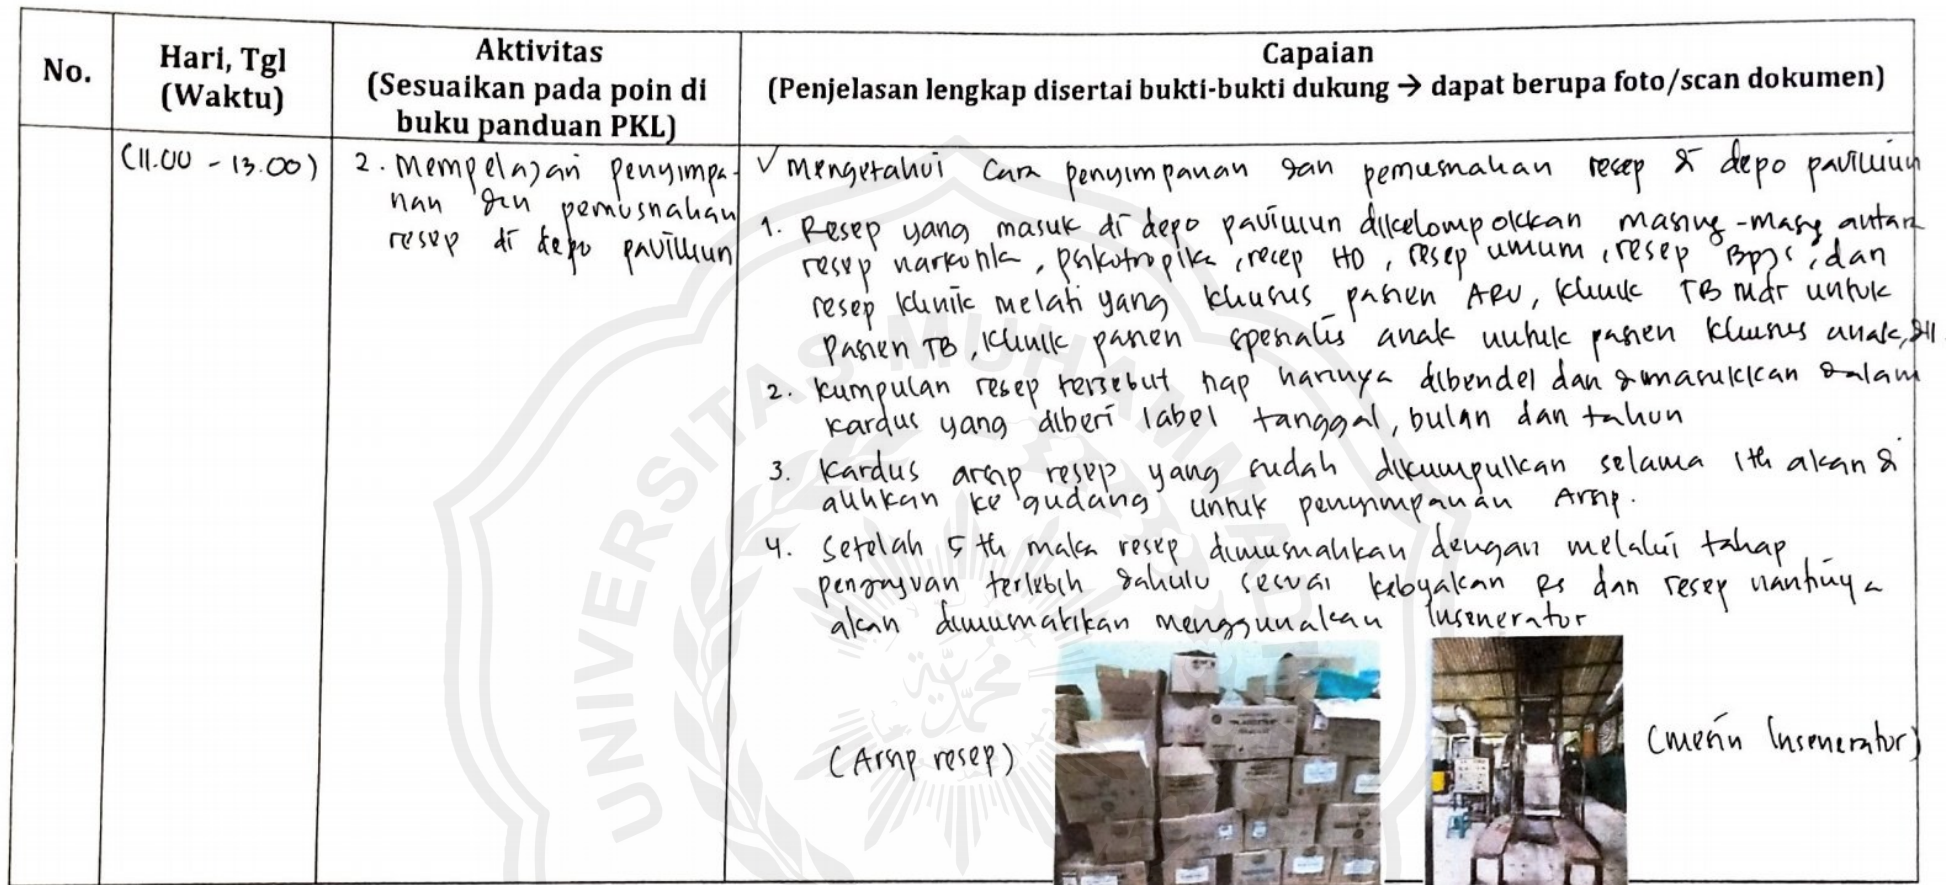 No.
Hari, Tgl
(Waktu)
Aktivitas
(Sesuaikan pada poin di
buku panduan PKL)
Capaian
(Penjelasan lengkap disertai bukti-bukti dukung → dapat berupa foto/scan dokumen)
(11.00 - 13.00)
2. Mempelajari penyimpa-
nan dan pemusnahan
resep di depo pavilliun
√ Mengetahui Cara penyimpanan dan pemusnahan resep di depo pavilliun
1. Resep yang masuk di depo paviliun dikelompokkan masing-masing antara
resep narkotika, psikotropika, resep HD, resep umum, resep BPJS, dan
resep klinik melati yang khusus pasien ARV, klinik TB Mdr untuk
Pasien TB, klinik pasien spesialis anak untuk pasien khusus anak, dll
2. kumpulan resep tersebut tiap harinya dibendel dan dimasukkan dalam
kardus yang diberi label tanggal, bulan dan tahun
3. Kardus arsip resep yang sudah dikumpulkan selama 1th akan di
alihkan ke gudang untuk penyimpanan Arsip.
4. Setelah 5 th maka resep dimusnahkan dengan melalui tahap
pengajuan terlebih dahulu sesuai kebijakan Rs dan resep nantinya
akan dimusnahkan menggunakan Insenerator
(Arsip resep)
(mesin Insenerator)
UNIVERSITAS MUHAMMAD